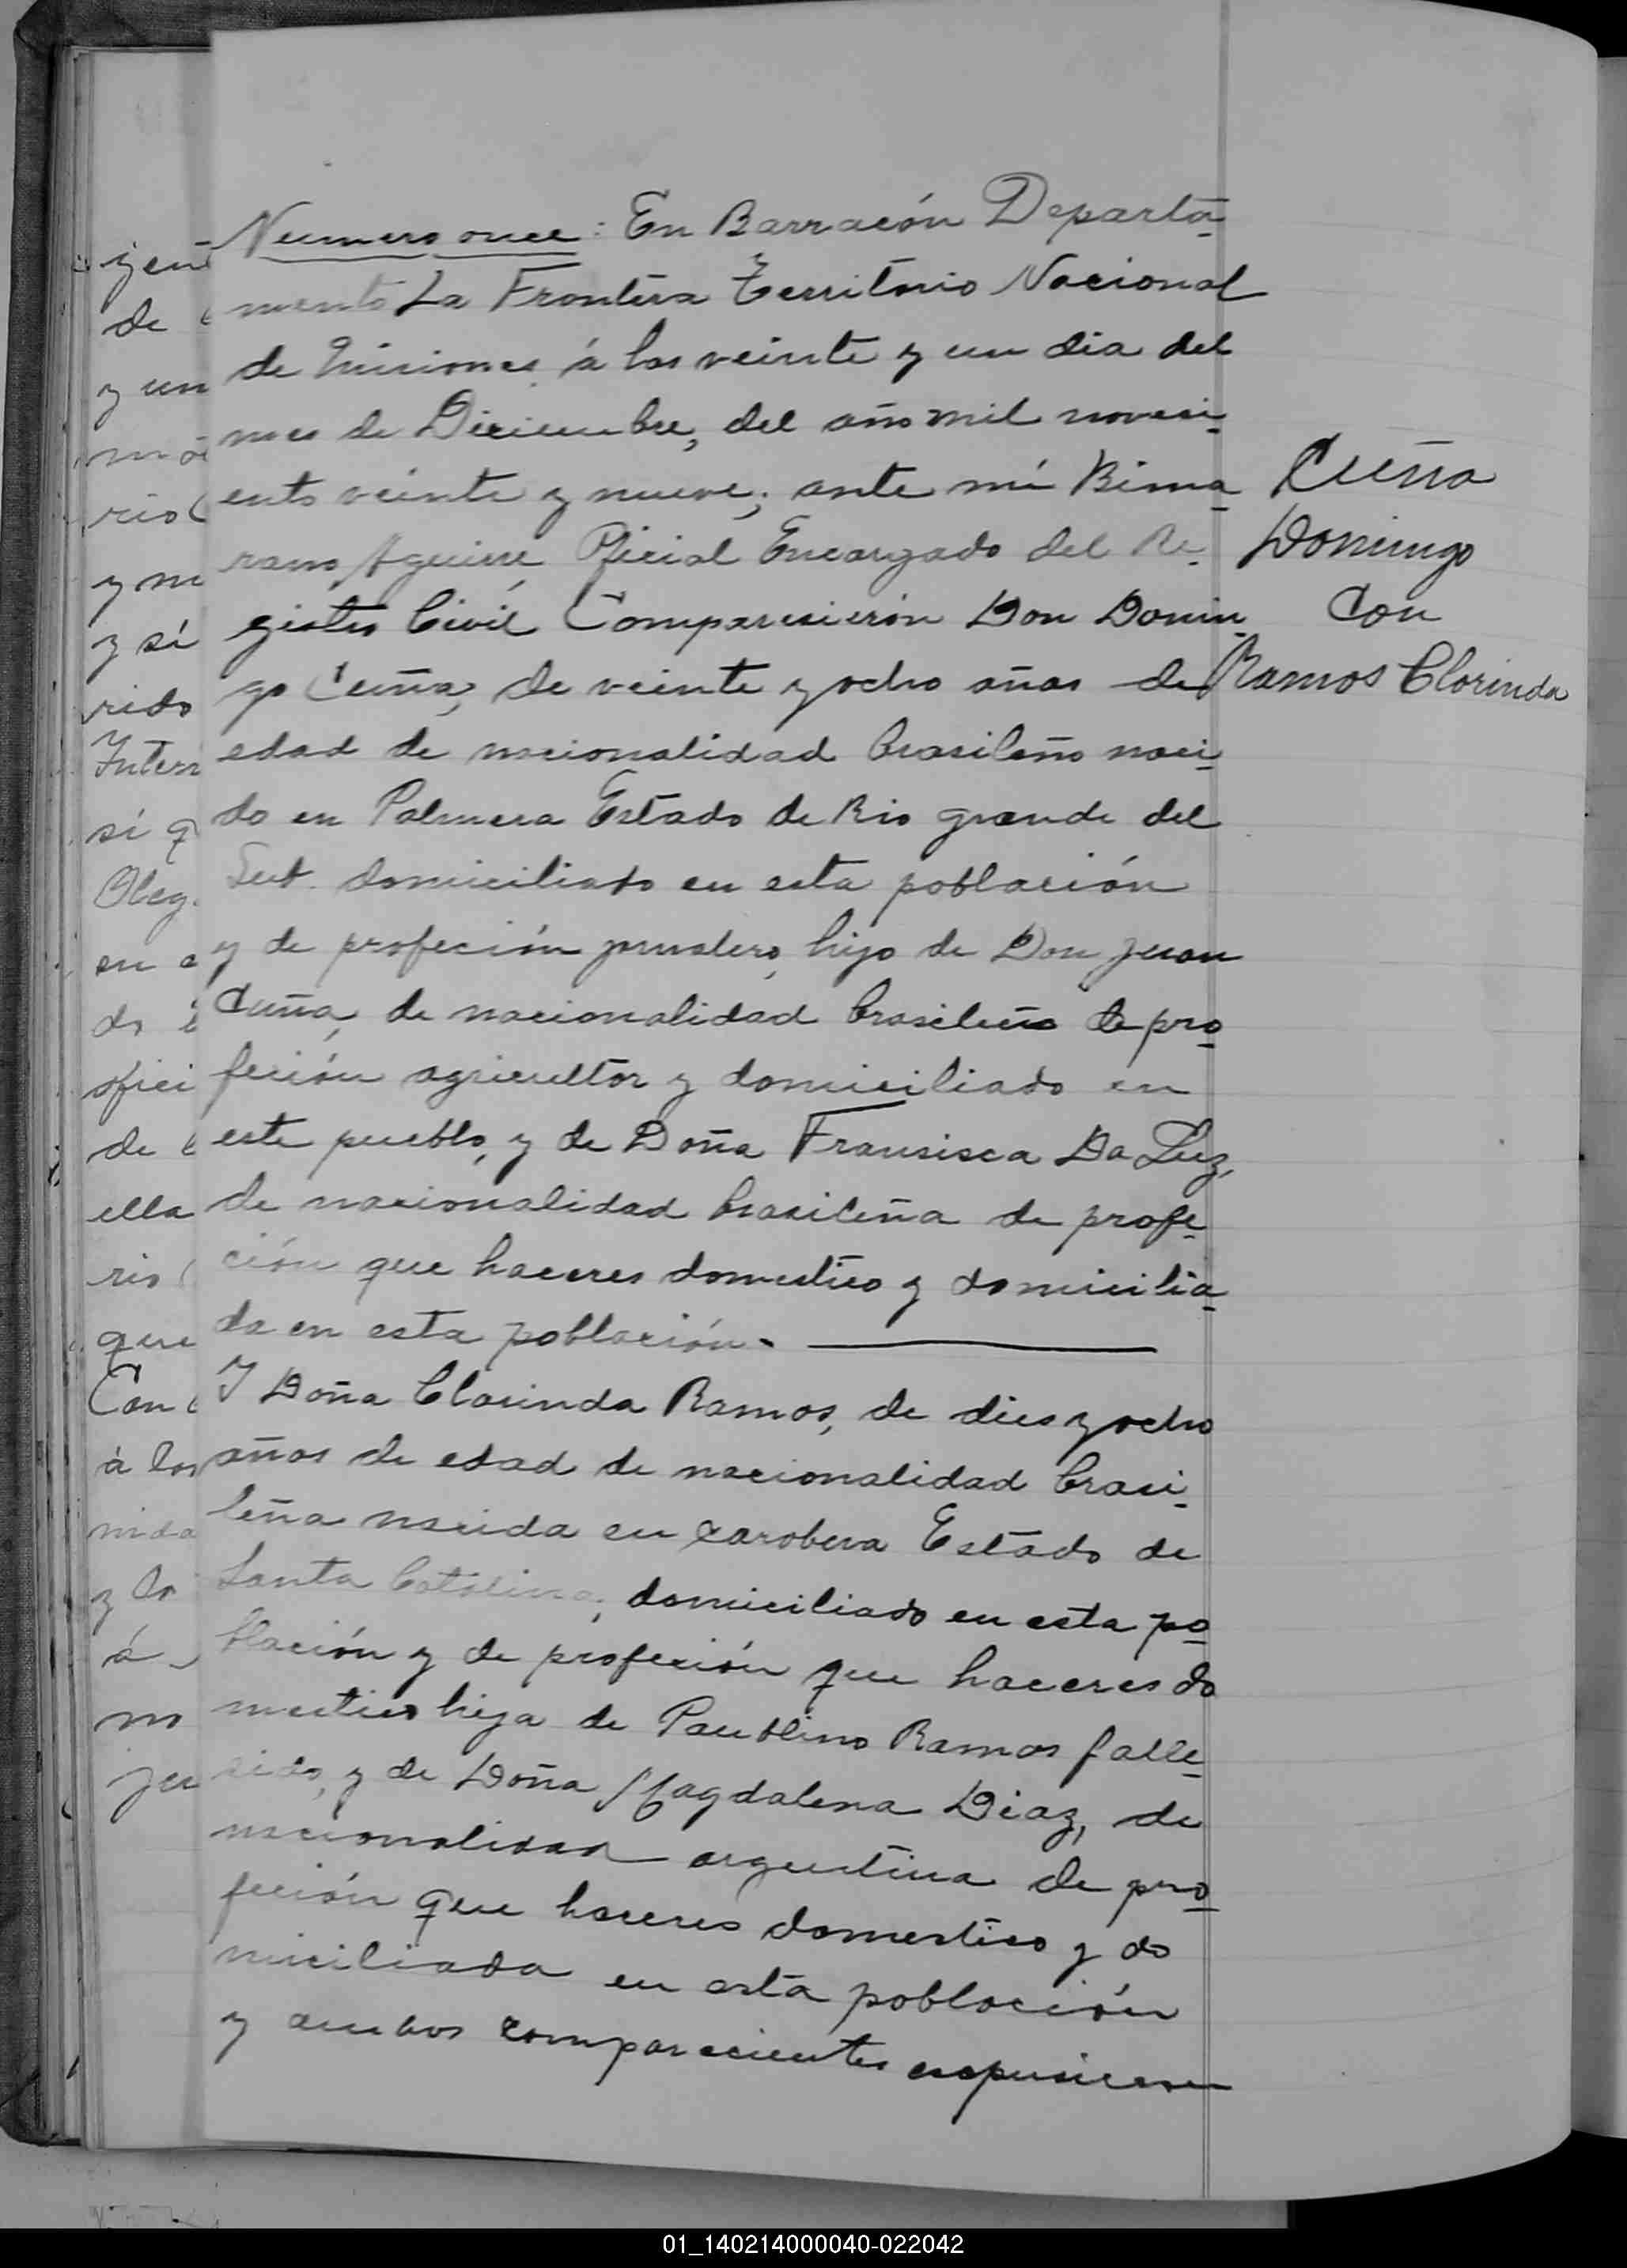 Numero once: En Barracón Departa-
mento La Frontera Territorio Nacional
de Misiones, á los veinte y un dia del
mes de Diciembre, del año mil noveci-
ento veinte y nueve; ante mi Bima-
rano Aguirre Oficial Encargado del Re-
gistro Civil Comparecierón Don Domin-
go Cuña, de veinte y ocho años de
edad de nacionalidad brasileño naci-
do en Palmera Estado de Rio grande del
Sud. domiciliado en esta población
y de profeción jornalero, hijo de Don Juan
Cuña, de nacionalidad brasileño de pro-
feción agricultor y domiciliado en
este pueblo, y de Doña Fransisca Da Luz,
de nacionalidad brasileña de profe-
ción que haceres domestico y domicilia-
da en esta población.
Y Doña Clorinda Ramos, de dies y ocho
años de edad de nacionalidad brasi-
leña nacida en Estado de
Santa Catalina, domiciliado en esta po-
blación y de profeción que haceres do
mestico hija de Paublino Ramos falle-
cido, y de Doña Magdalena Diaz, de
nacionalidad argentina de pro-
feción que haceres domestico y do
miciliada en esta población
y ambos comparecientes
Cuña
Domingo
Con
Ramos Clorinda
yen
de
y un
rio
y
y sí
rido
sí q
Oleg.
en
do
ofici
de
ella
rio
que
Con
á los
nida
y lo
á
no
01_140214000040-022042